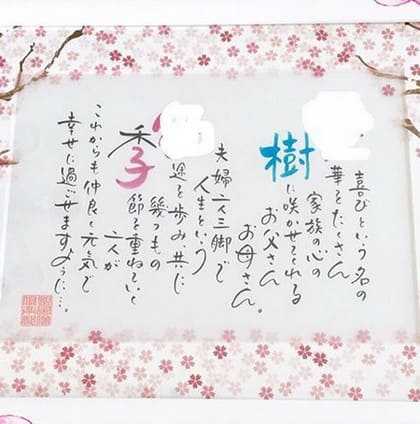 喜びという名の
華をたくさん
家族の心の
樹に咲かせてくれる
お父さん
お母さん。
夫婦二人三脚で
人生という
途を歩み、共に
幾つもの
季節を重ねていく
二人が
これからも仲良く元気で
幸せに過ごせますように…。